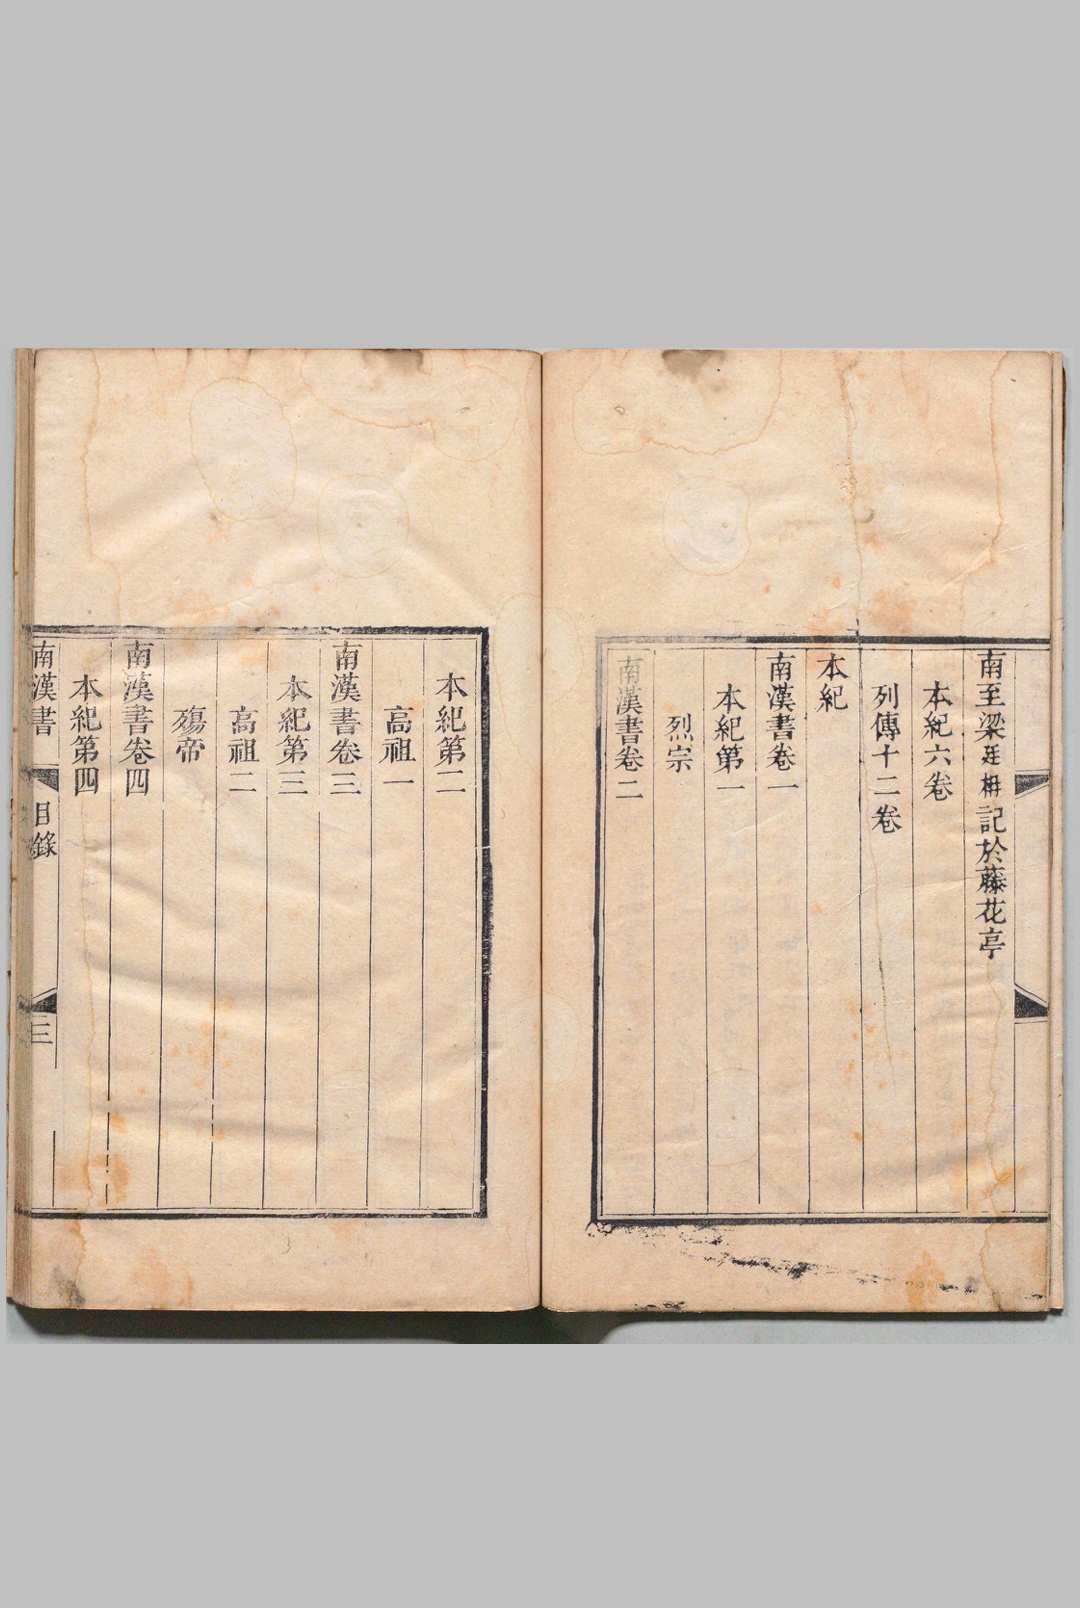 南至梁廷枏記於藤花亭
本紀六卷
列傳十二卷
本紀
南漢書卷一
本紀第一
烈宗
南漢書卷二
本紀第二
高祖一
南漢書卷三
本紀第三
高祖二
殤帝
南漢書卷四
本紀第四
南漢書 目錄 三